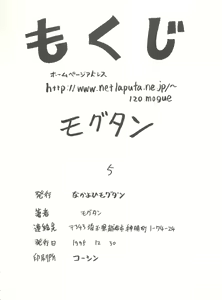 もくじ
ホームページアドレス
http://www.netlaputa.ne.jp/~
120mogue
モグタン
5
発行 なかよひモグダン
著者 モグタン
連絡先 〒343 埼玉県越谷市神明町1-74-24
発行日 1998 12 30
印刷所 コーシン